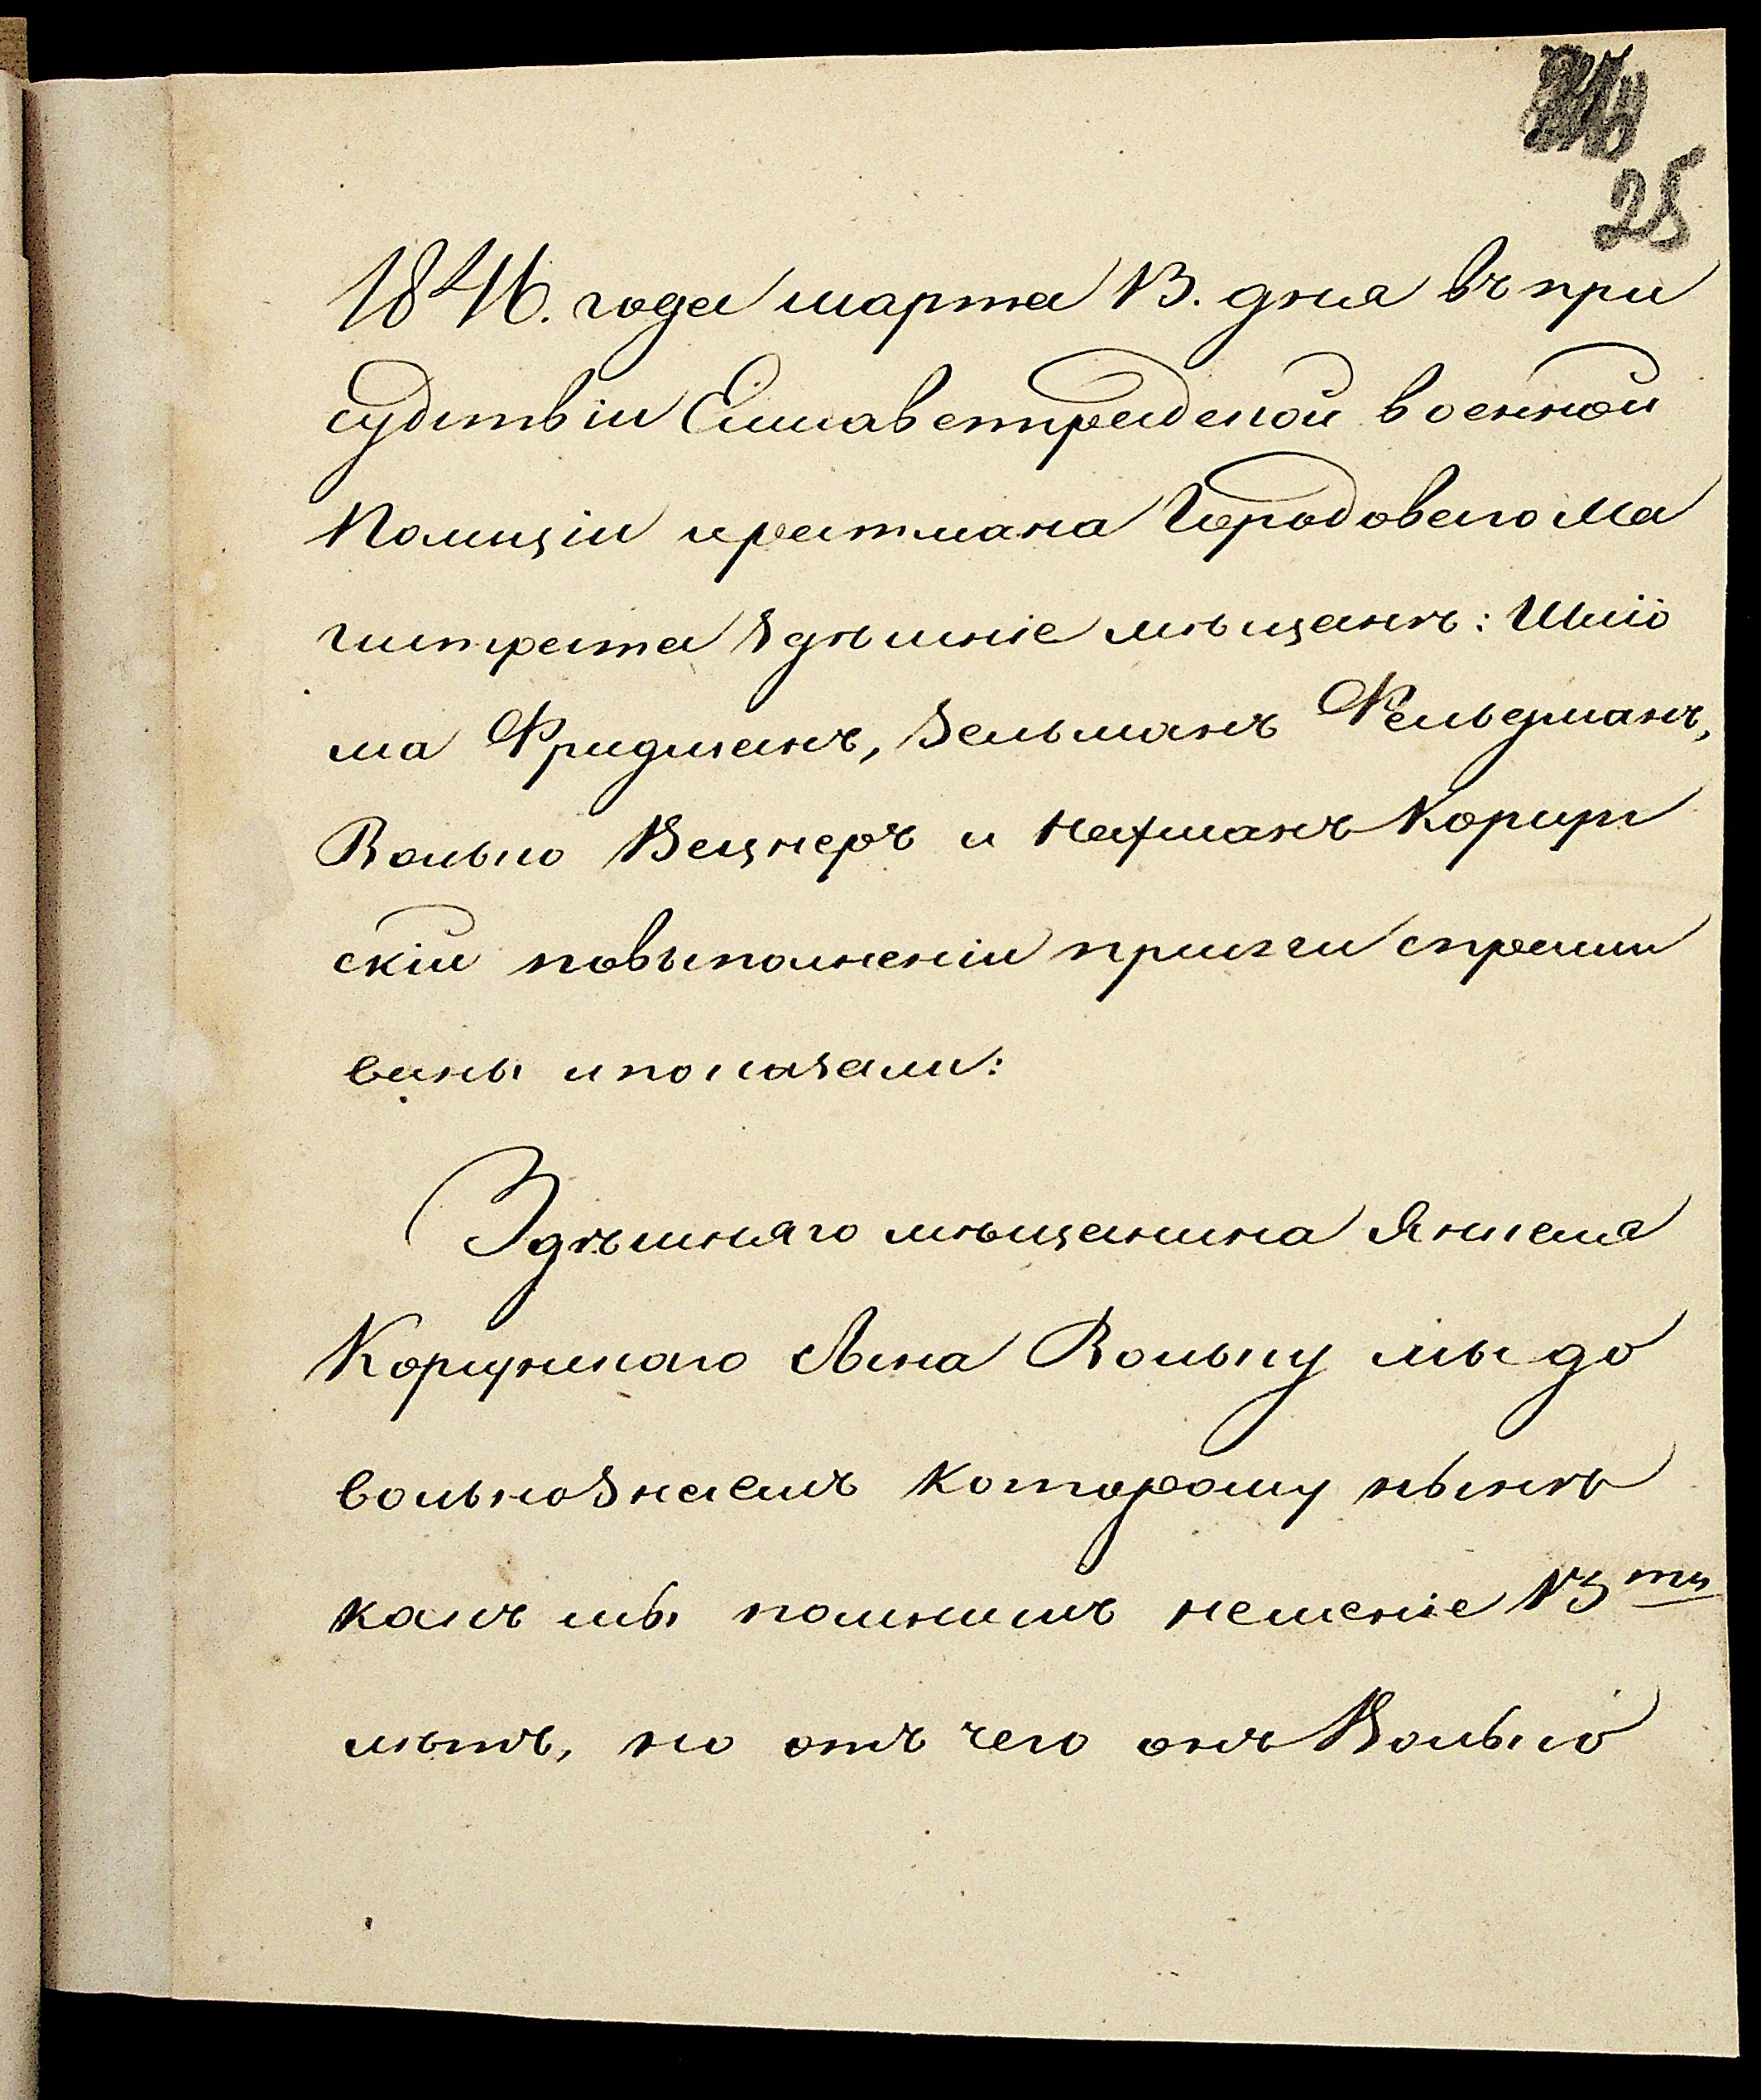 25
1846. года марта 13. дня въ при
судствіи Елисаветградской военной
Полиціи и ратмана Городоваго Ма
гистрата здѣшніе мѣщане: Шлiо
ма Фридманъ, Зельманъ Фельдманъ,
Волько Вецнеръ и Нахманъ Корсун
скій повыполненіи присяги спраши
ваны и показали:
Здѣшняго мѣщанина Янкеля
Корсунскаго сына Вольку мы до
вольно знаемъ которому нынѣ
какъ мы помнимъ неменѣе 15ти
лѣтъ, но отъ чего онъ Волько